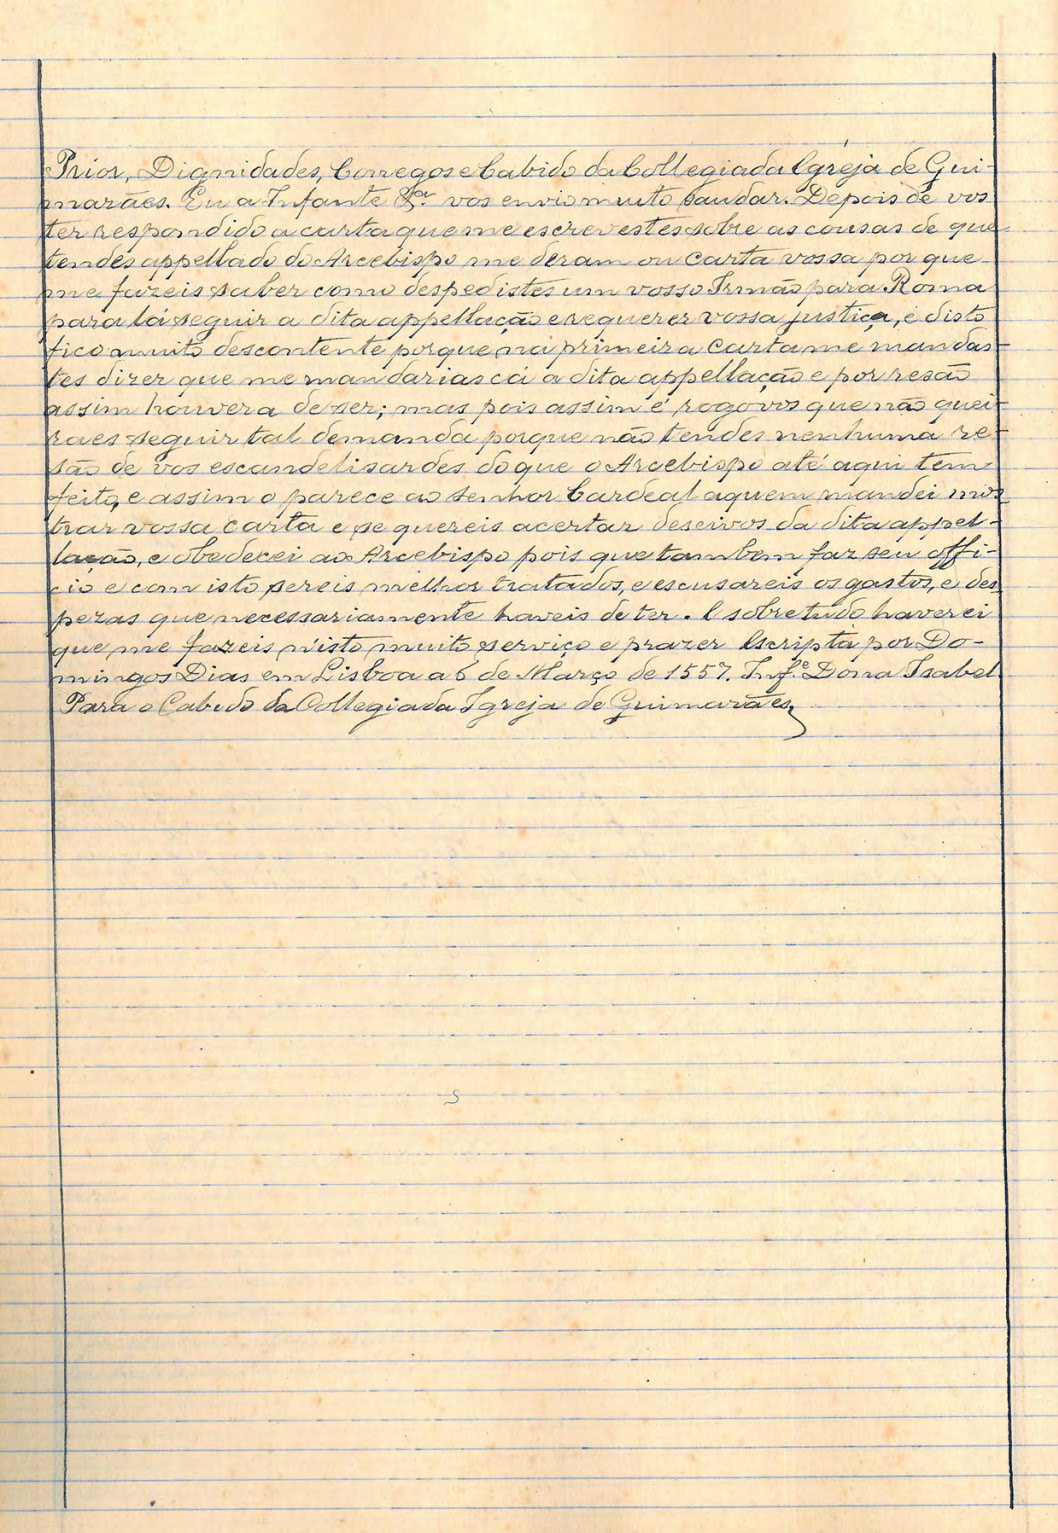 Prior, Dignidades, Conegos e Cabido da Collegiada Igreja de Gui-
marães. Eu a Infante vos envio muito saudar. Depois de vos
ter respondido a carta que me escrevestes sobre as cousas de que
tendes appellado do Arcebispo me deram ou carta vossa por que
me fazeis saber como despedistes um vosso Irmão para Roma
para lá seguir a dita appellação e requerer vossa justiça, e disto
fico muito descontente porque na primeira carta me mandas-
tes dizer que me mandarias cá a dita appellação e por resão
assim houvera de ser; mas pois assim é rogovos que não quei-
raes seguir tal demanda porque não tendes nenhuma re-
são de vos escandelisardes do que o Arcebispo até aqui tem
feito, e assim o parece ao Senhor Cardeal aquem mandei mos
trar vossa carta e se quereis acertar deseivos da dita appel-
lação, e obedecei ao Arcebispo pois que tambem faz seu offi-
cio e com isto sereis melhor tratados, e escusareis os gastos, e des
pezas que necessariamente haveis de ter. E sobretudo haverei
que me fazeis n'isto muito serviço e prazer Escripta por Do-
mingos Dias em Lisboa a 6 de Março de 1557. Inf.e Dona Isabel
Para o Cabido da Collegiada Igreja de Guimarães